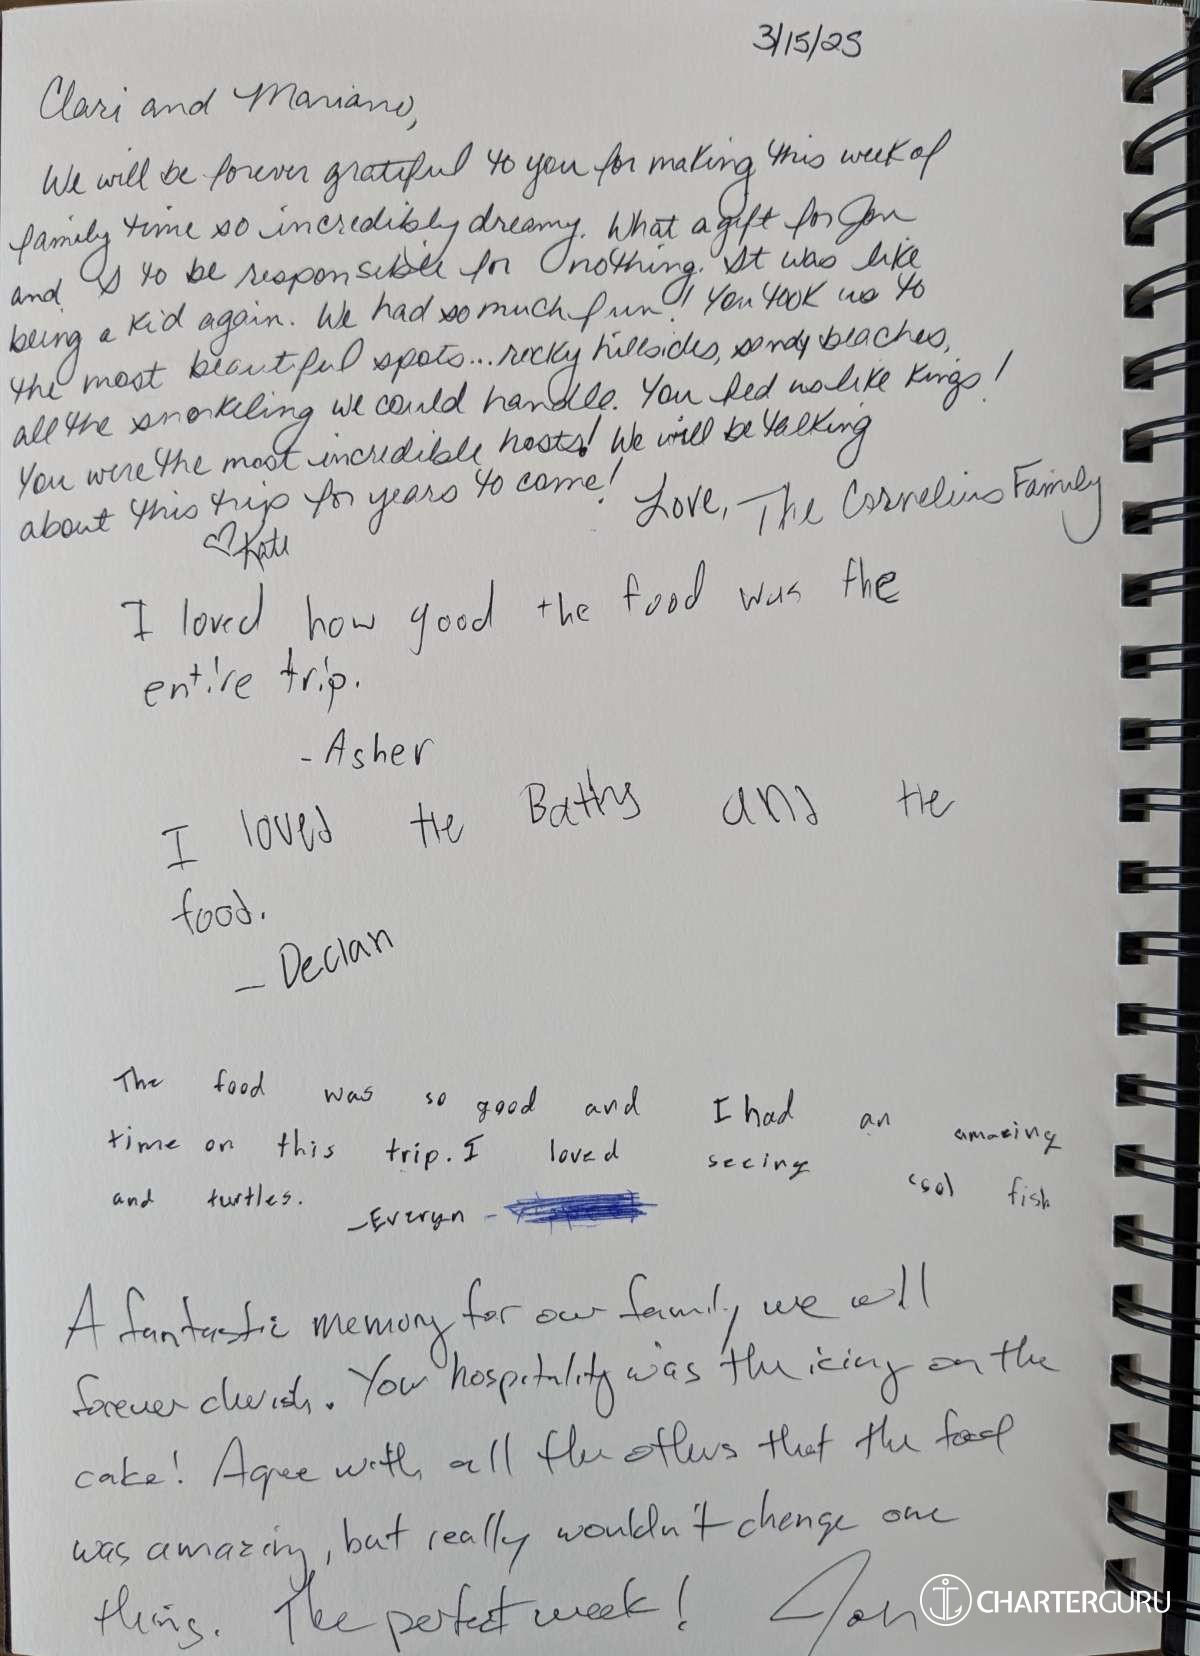 3/15/25
Clari and Mariano,
We will be forever grateful to you for making this week of
family time so incredibly dreamy. What a gift for Jon
and I to be responsible for nothing. It was like
being a kid again. We had so much fun! You took us to
the most beautiful spots... rocky hillsides, sandy beaches,
all the snorkeling we could handle. You fed us like kings!
You were the most incredible hosts! We will be talking
about this trip for years to come!
Love, The Cornelius Family
♡Kate
I loved how good the food was the
entire trip.
- Asher
I loved the Baths and the
food.
- Declan
The food was so good and I had an amazing
time on this trip. I loved seeing fish
and turtles.
- Everyn -
A fantastic memory for our family we will
forever cherish. Your hospitality was the icing on the
cake! Agree with all the others that the food
was amazing, but really wouldn't change one
thing. The perfect week! Jon
CHARTERGURU